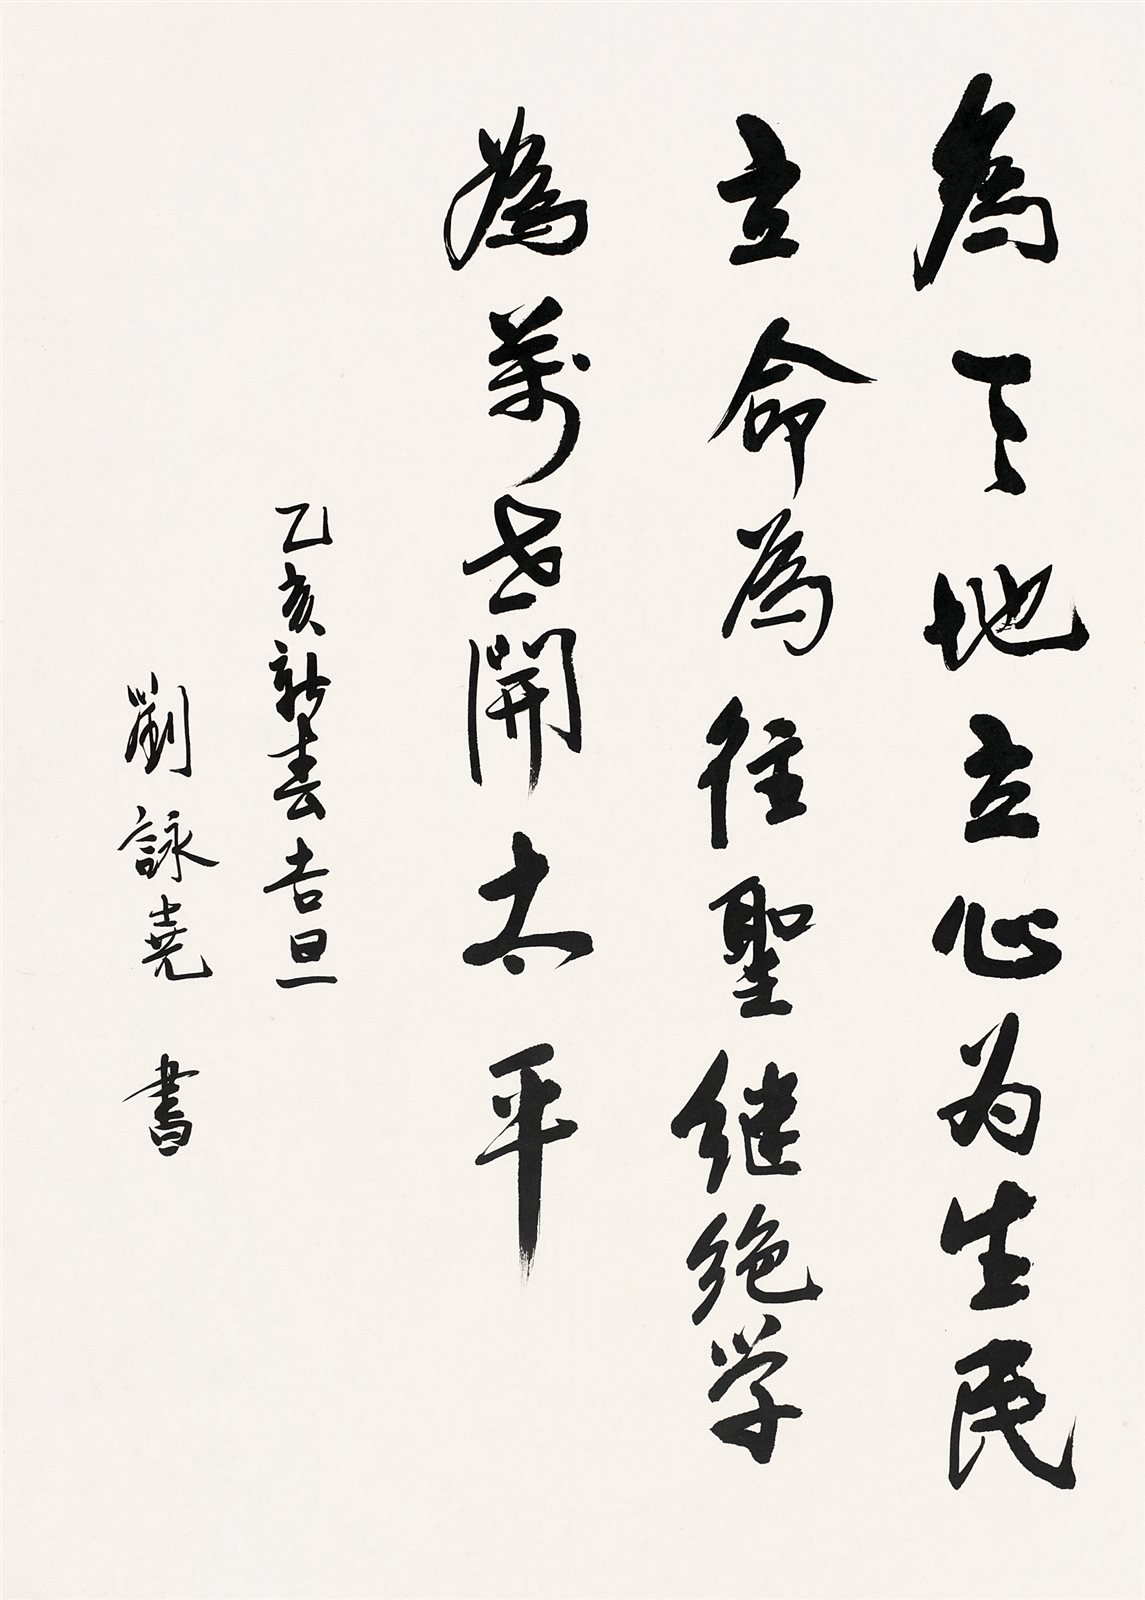 為天地立心为生民
立命為往聖继绝学
為萬世開太平
乙亥新春吉旦
劉詠堯 書